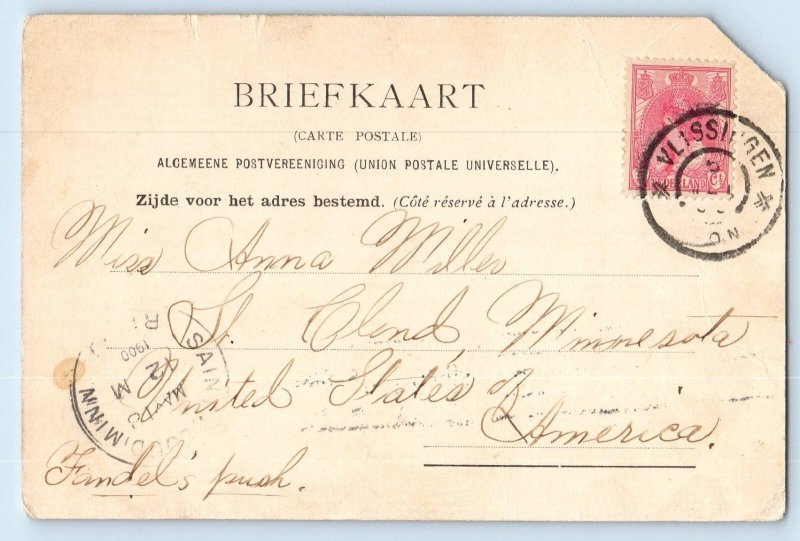 BRIEFKAART
(CARTE POSTALE)
ALGEMEENE POSTVEREENIGING (UNION POSTALE UNIVERSELLE).
Zijde voor het adres bestemd. (Côté réservé à l'adresse.)
NEDERLAND
VLISSINGEN
Miss Anna Miller
St. Cloud Minnesota
United States of
America.
Fandel's push.
SAIN
MINN
1900
M